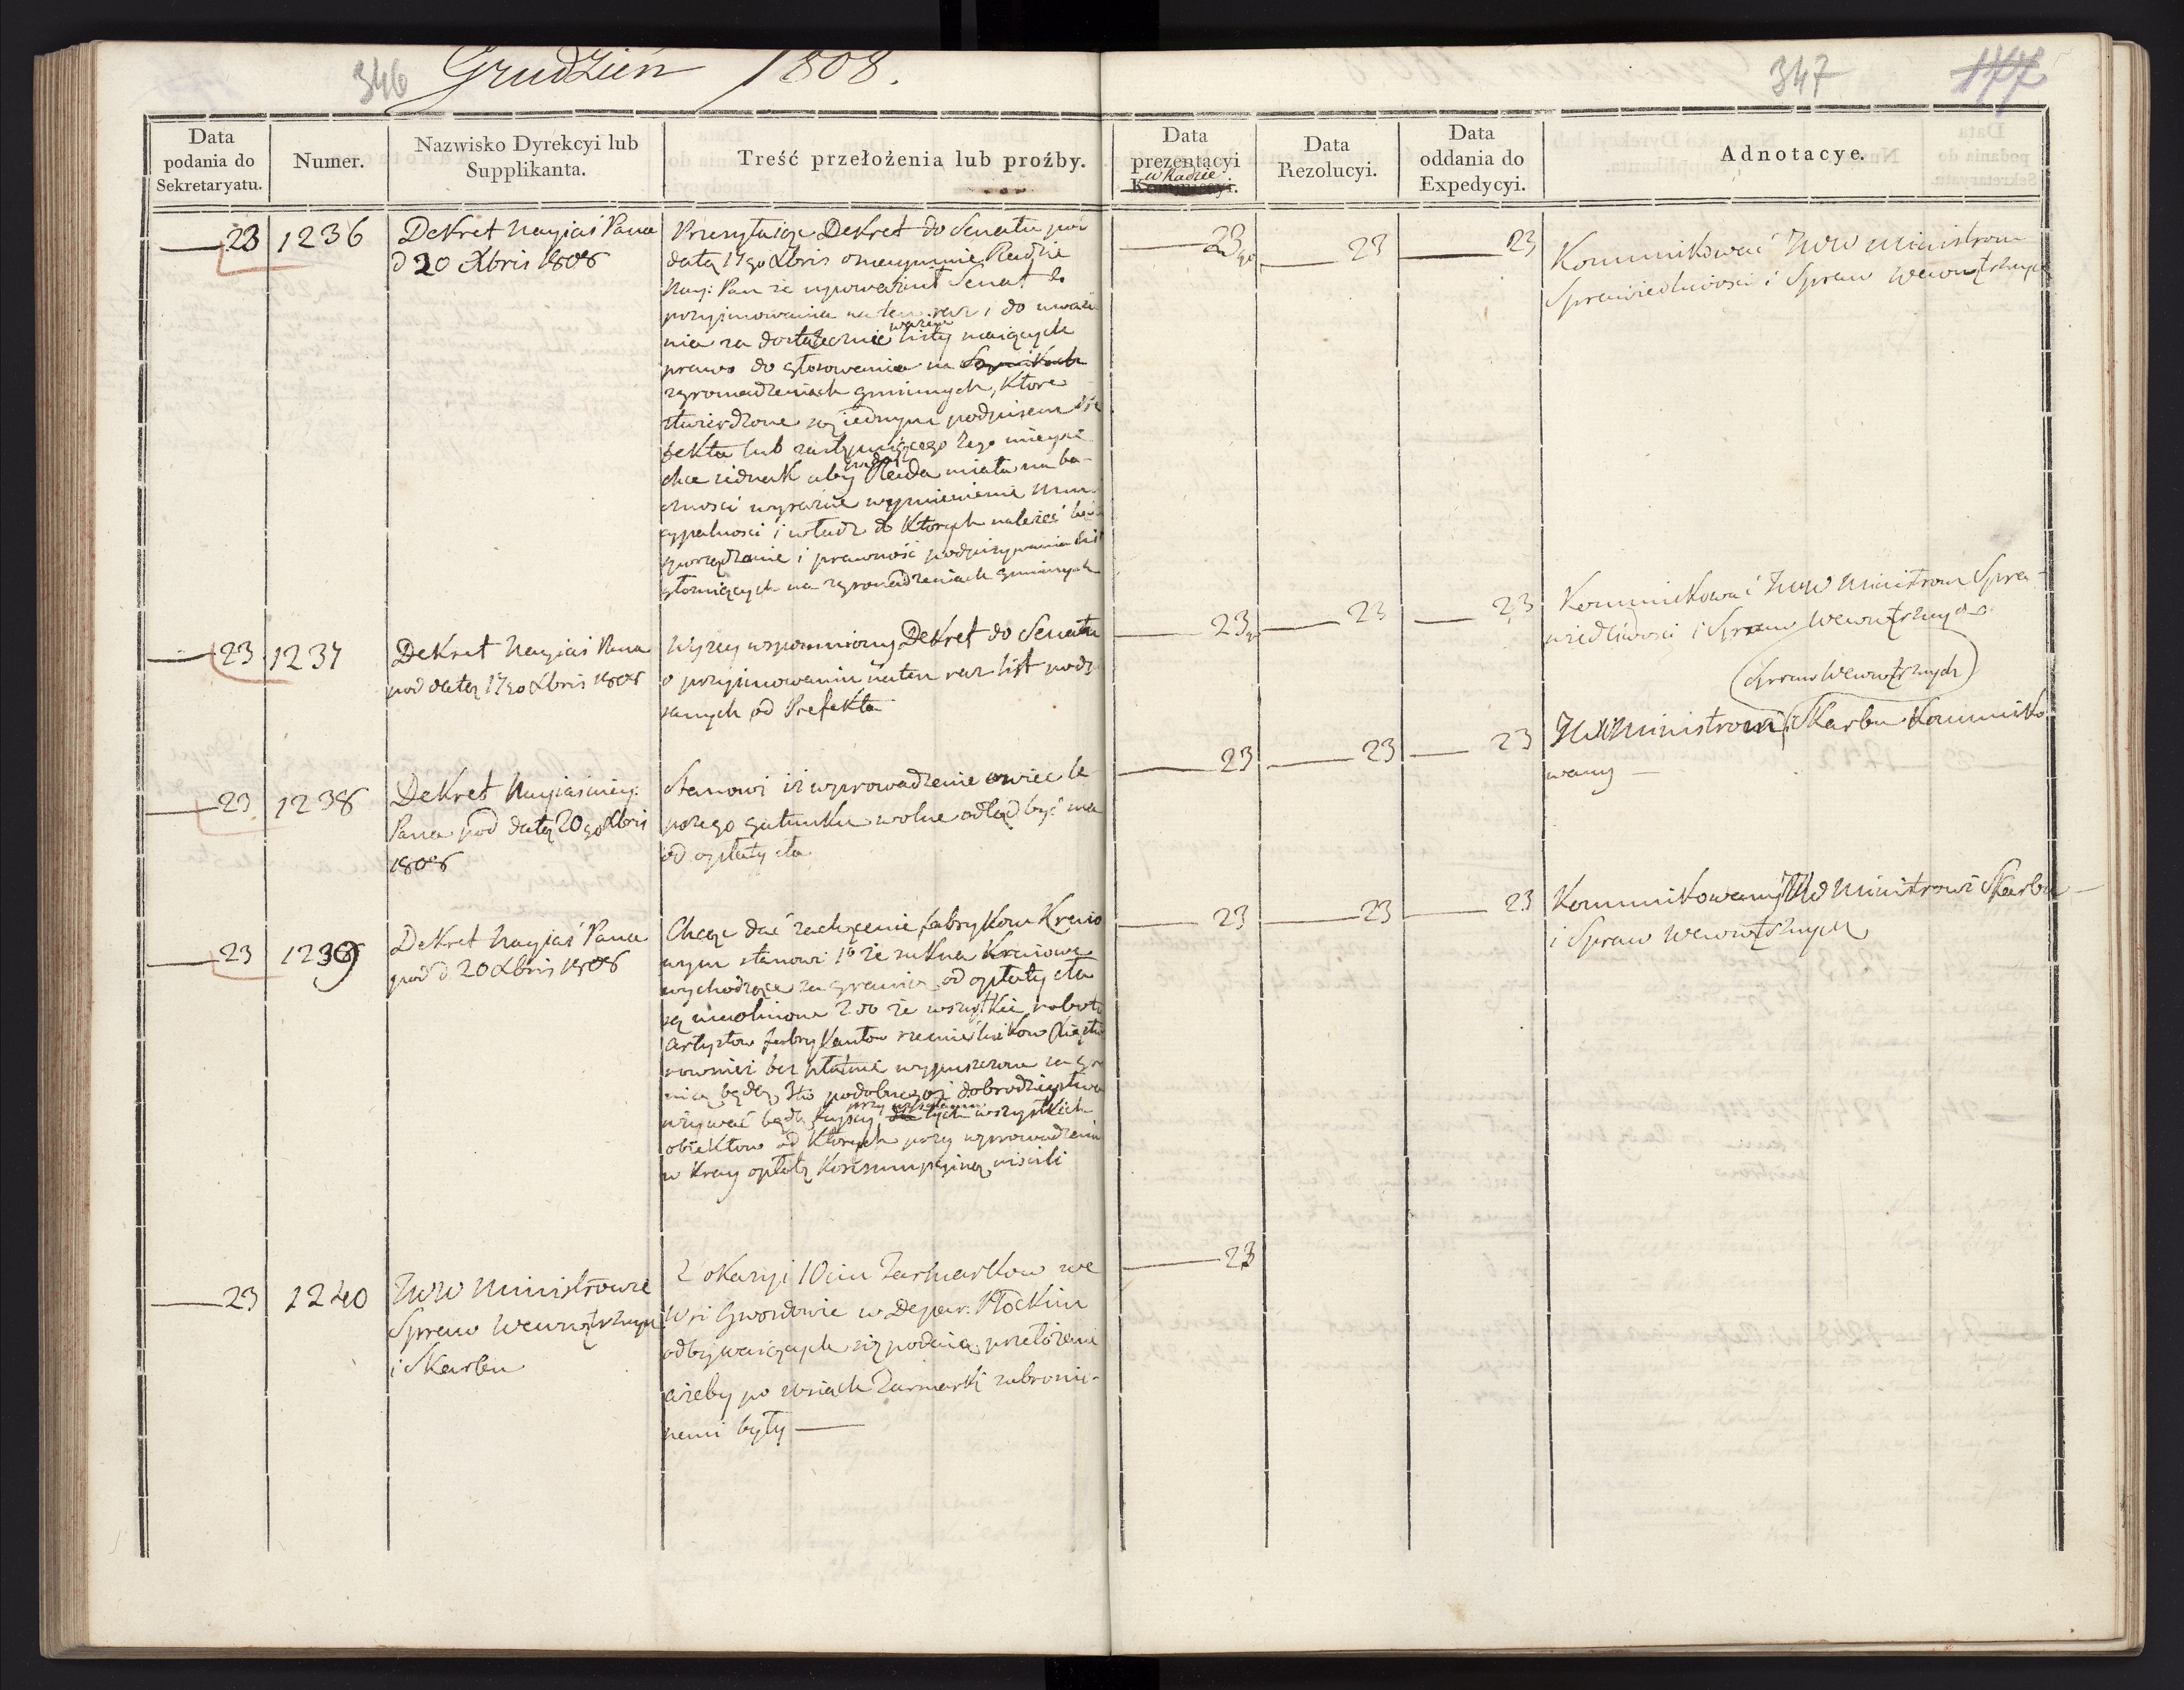 346 Grudzień 1808.
347 177
Data podania do Sekretaryatu.
Numer.
Nazwisko Dyrekcyi lub Supplikanta.
Treść przełożenia lub proźby.
Data prezentacyi Kommissyi. w Radzie
Data Rezolucyi.
Data oddania do Expedycyi.
Adnotacye.
23 1236
Dekret Nayjaś Pana
d 20 Xbris 1808
Przesyłaiąc Dekret do Senatu pod
datą 17go Xbris oznaymuie Radzie
Nay: Pan że upoważnił Senat do
przyimowania na ten raz i do uważa
nia za dostatecznie ważne listy maiących
prawo do głosowania na Seymikach
zgromadzeniach gminnych, które
stwierdzone są iednym podpisem Pre
fekta lub zastępuiącego iego mieysce
chce iednak aby Rada miała na ba-
czności wyraźne wymienienie Muni
cypalności i władz do których należeć bę
sporządzenie i prawność podpisywania list
głosuiących na zgromadzeniach gminnych
23go 23 23
Kommunikować JWW Ministrom
Sprawiedliwości i Spraw Wewnętrznych
23 1237
Dekret Nayjaś Pana
pod datą 17go Xbris 1808
Wyżey wspomniony Dekret do Senatu
o przyimowaniu na ten raz list podpi
sanych od Prefekta
23go 23 23
Kommunikować JWW Ministrom Spra-
wiedliwości i Spraw Wewnętrznych
23 1238
Dekret Nayjaśniey:
Pana pod datą 20go Xbris
1808
Stanowi iż wyprowadzenie owiec le-
pszego gatunku wolne odtąd być ma
od opłaty cła
23 23 23
Spraw Wewnętrznych
JWW Ministrom i Skarbu Kommuniko
wany
23 1239
Dekret Nayjaś Pana
pod d 20 Xbris 1808
Chcąc dać zachęcenie fabrykom Kraio
wym stanowi 1o że sukna Kraiowe
wychodzące za granicę od opłaty cła
są uwolnione 2do że wszystkie roboty
Artystow fabrykantow rzemieślnikow Xięstwa
rownież bez płatnie wypuszczone za gra
nicę będą, 3tio podobnegoż dobrodzieystwa
używać będą kupcy przy wysyłaniu tych wszystkich
obiektow od których przy wprowadzeniu
w Kray opłatę Konsumpcyiną uiścili
23 23 23
Kommunikowany JWW Ministrowi Skarbu
i Spraw Wewnętrznych
23 1240
JWW Ministrowie
Spraw Wewnętrznych
i Skarbu
Z okazyi 10ciu Jarmarkow we
Wsi Gwozdowie w Depar: Płockim
odbywaiących się podaią przełożenie
ażeby po wsiach Jarmarki zabronio-
nemi były
23